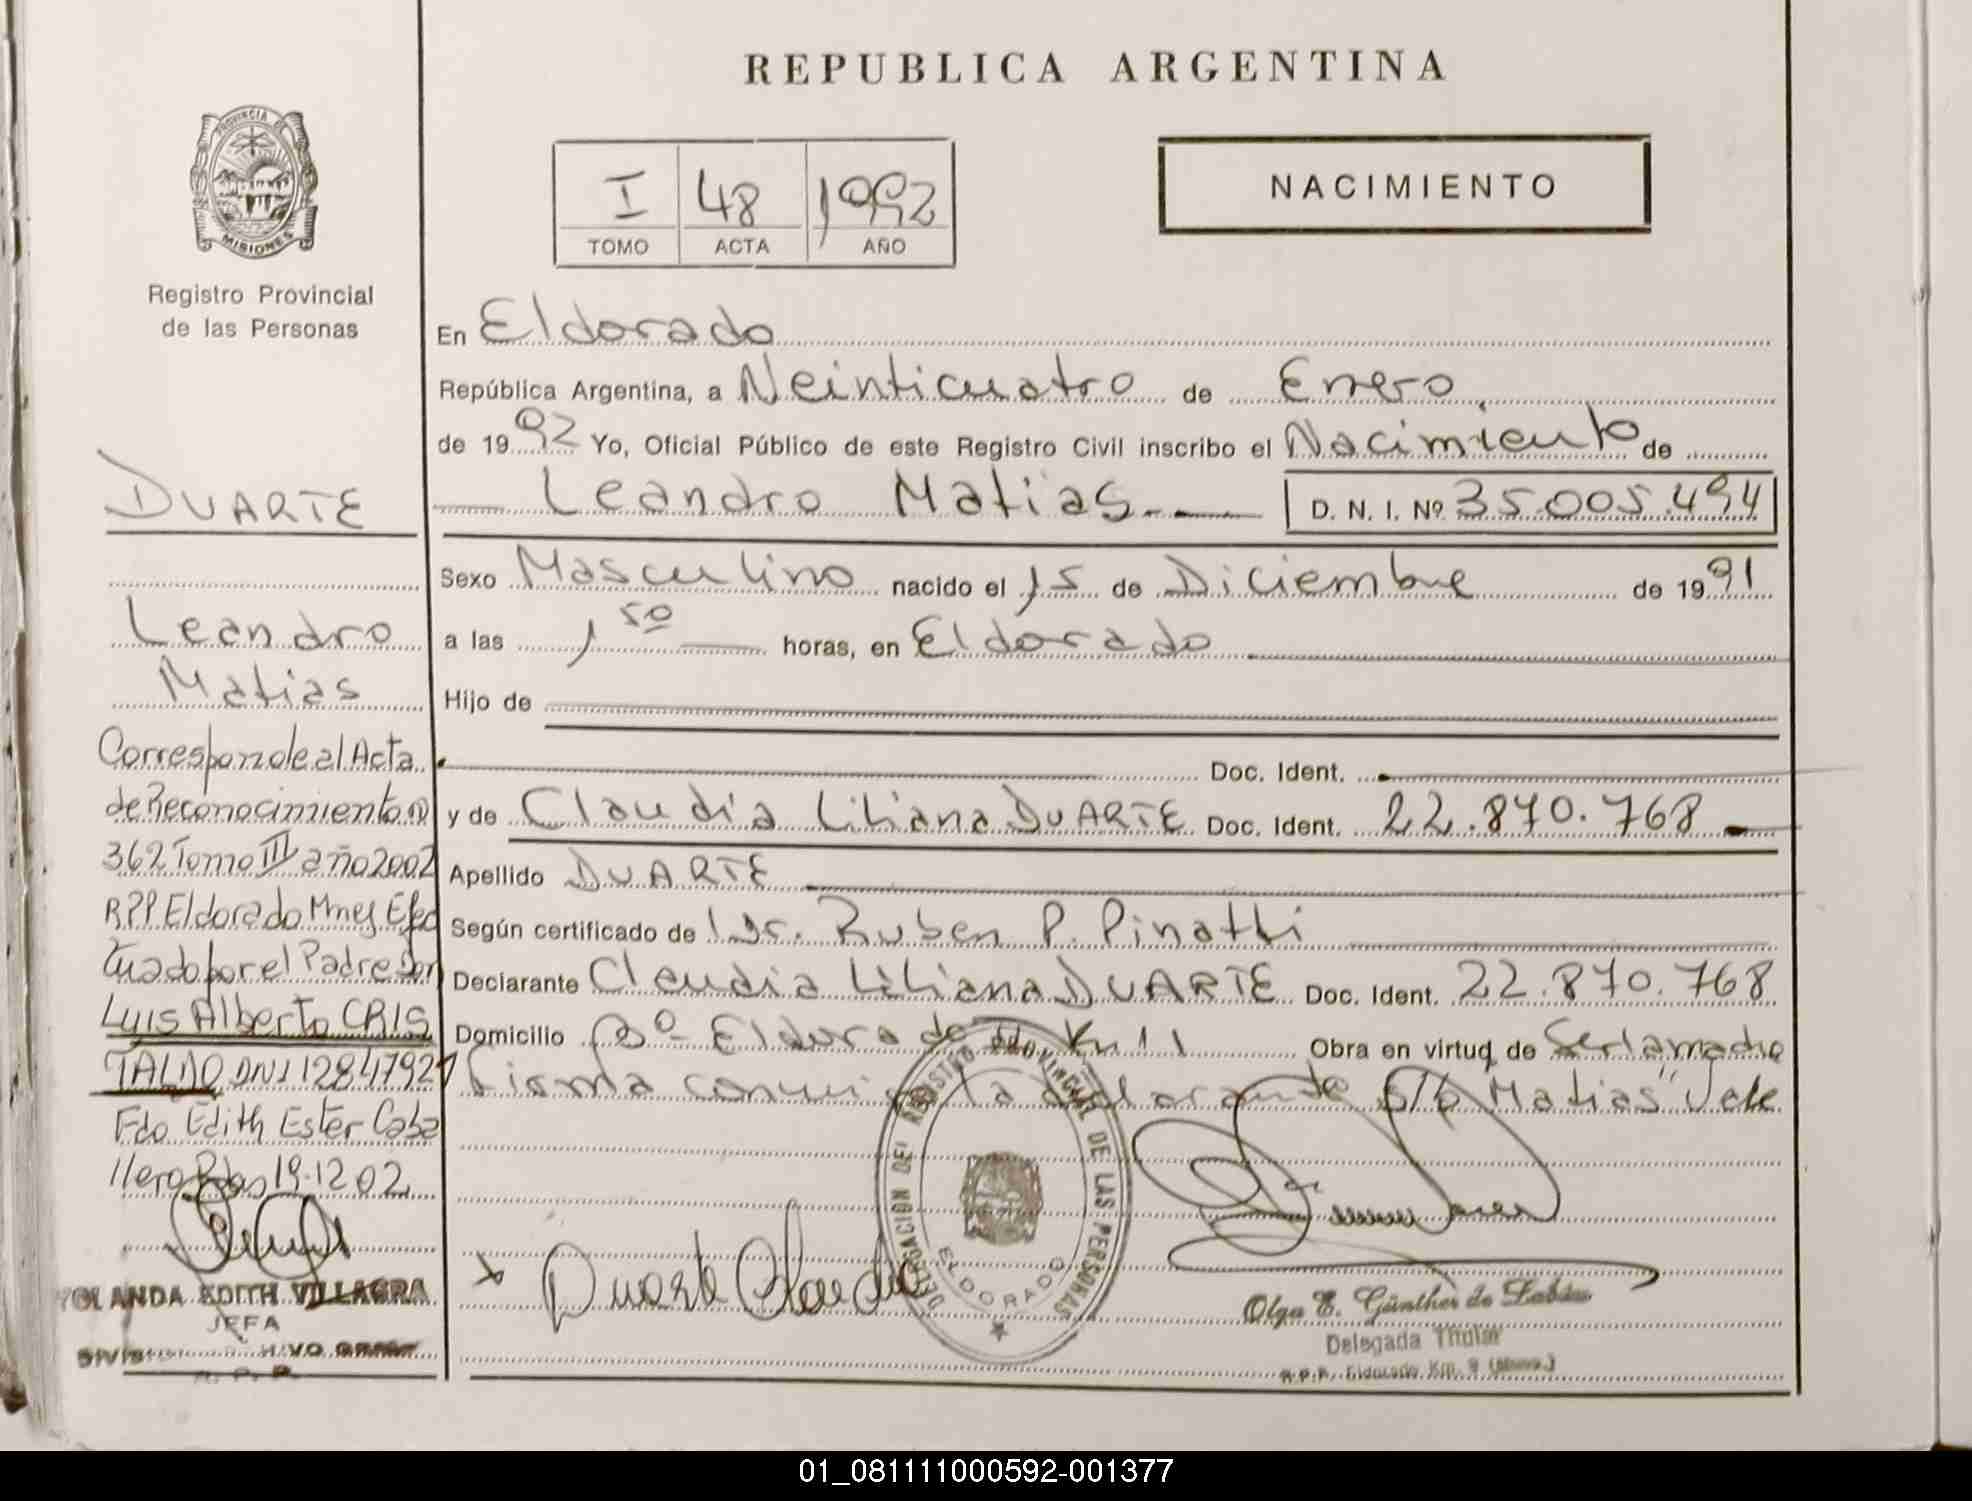 REPUBLICA ARGENTINA
PROVINCIA DE
MISIONES
Registro Provincial
de las Personas
I 48 1992
TOMO ACTA AÑO
NACIMIENTO
En Eldorado
República Argentina, a Veinticuatro de Enero
de 1992 Yo, Oficial Público de este Registro Civil inscribo el Nacimiento de
Leandro Matias D. N. I. Nº 35.005.494
Sexo Masculino nacido el 15 de Diciembre de 1991
a las 1 50 horas, en Eldorado
Hijo de
Doc. Ident.
y de Claudia Liliana DUARTE Doc. Ident. 22.870.768
Apellido DUARTE
Según certificado de Dr. Ruben P. Pinatti
Declarante Claudia Liliana DUARTE Doc. Ident. 22.870.768
Domicilio Bº Eldorado Km 11 Obra en virtud de Ser la madre
Firma conmigo la declarante s/b "Matias" Vale
DUARTE
Leandro
Matias
Corresponde al Acta
de Reconocimiento Nº
362 Tomo III año 2002
RPP Eldorado Mnes Efec
tuado por el Padre Don
Luis Alberto CRIS
TALDO DNI 12847927
Fdo Edith Ester Caba
llero Pdas 19.12 02
YOLANDA EDITH VILLAGRA
JEFA
R. P. P.
Duarte Claudia
DELEGACION DEL REGISTRO PROVINCIAL DE LAS PERSONAS
ELDORADO
Olga E. Günther de
Delegada Titular
R.P.P. Eldorado Km. 9 (Mnes.)
01_081111000592-001377